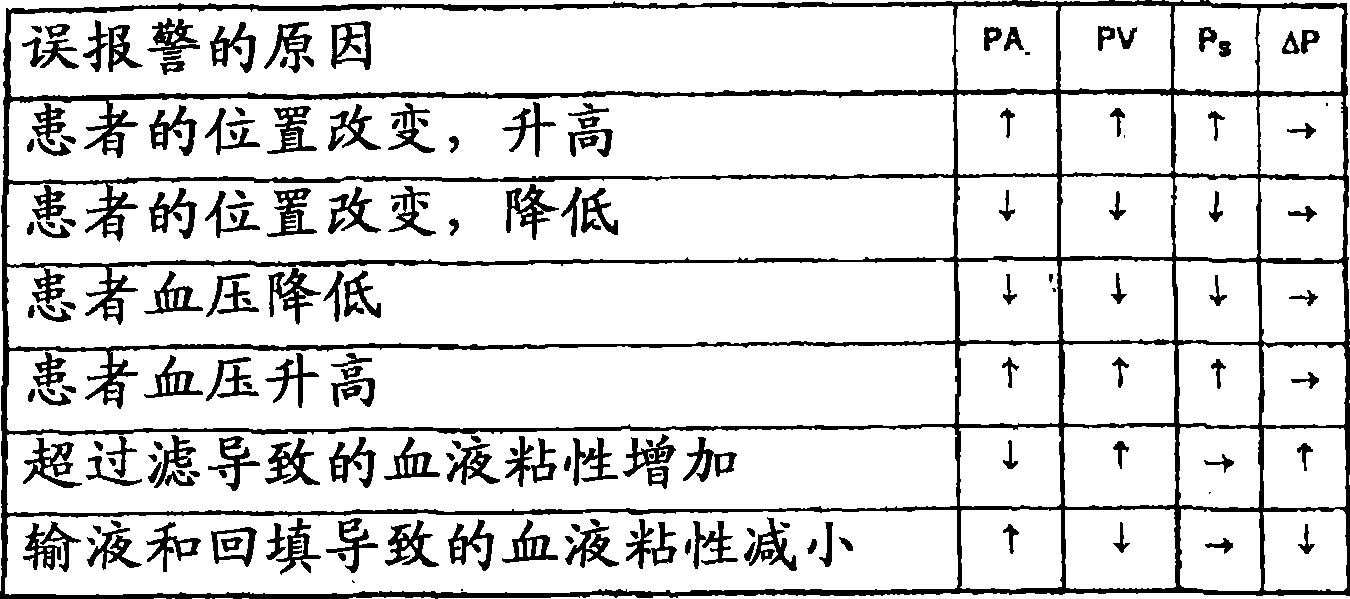 误报警的原因 PA. PV Ps ΔP
患者的位置改变，升高 ↑ ↑ ↑ →
患者的位置改变，降低 ↓ ↓ ↓ →
患者血压降低 ↓ ↓ ↓ →
患者血压升高 ↑ ↑ ↑ →
超过滤导致的血液粘性增加 ↓ ↑ → ↑
输液和回填导致的血液粘性减小 ↑ ↓ → ↓